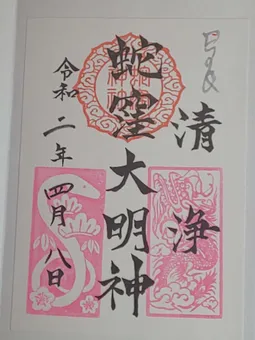 清浄
蛇窪大明神
令和二年四月八日